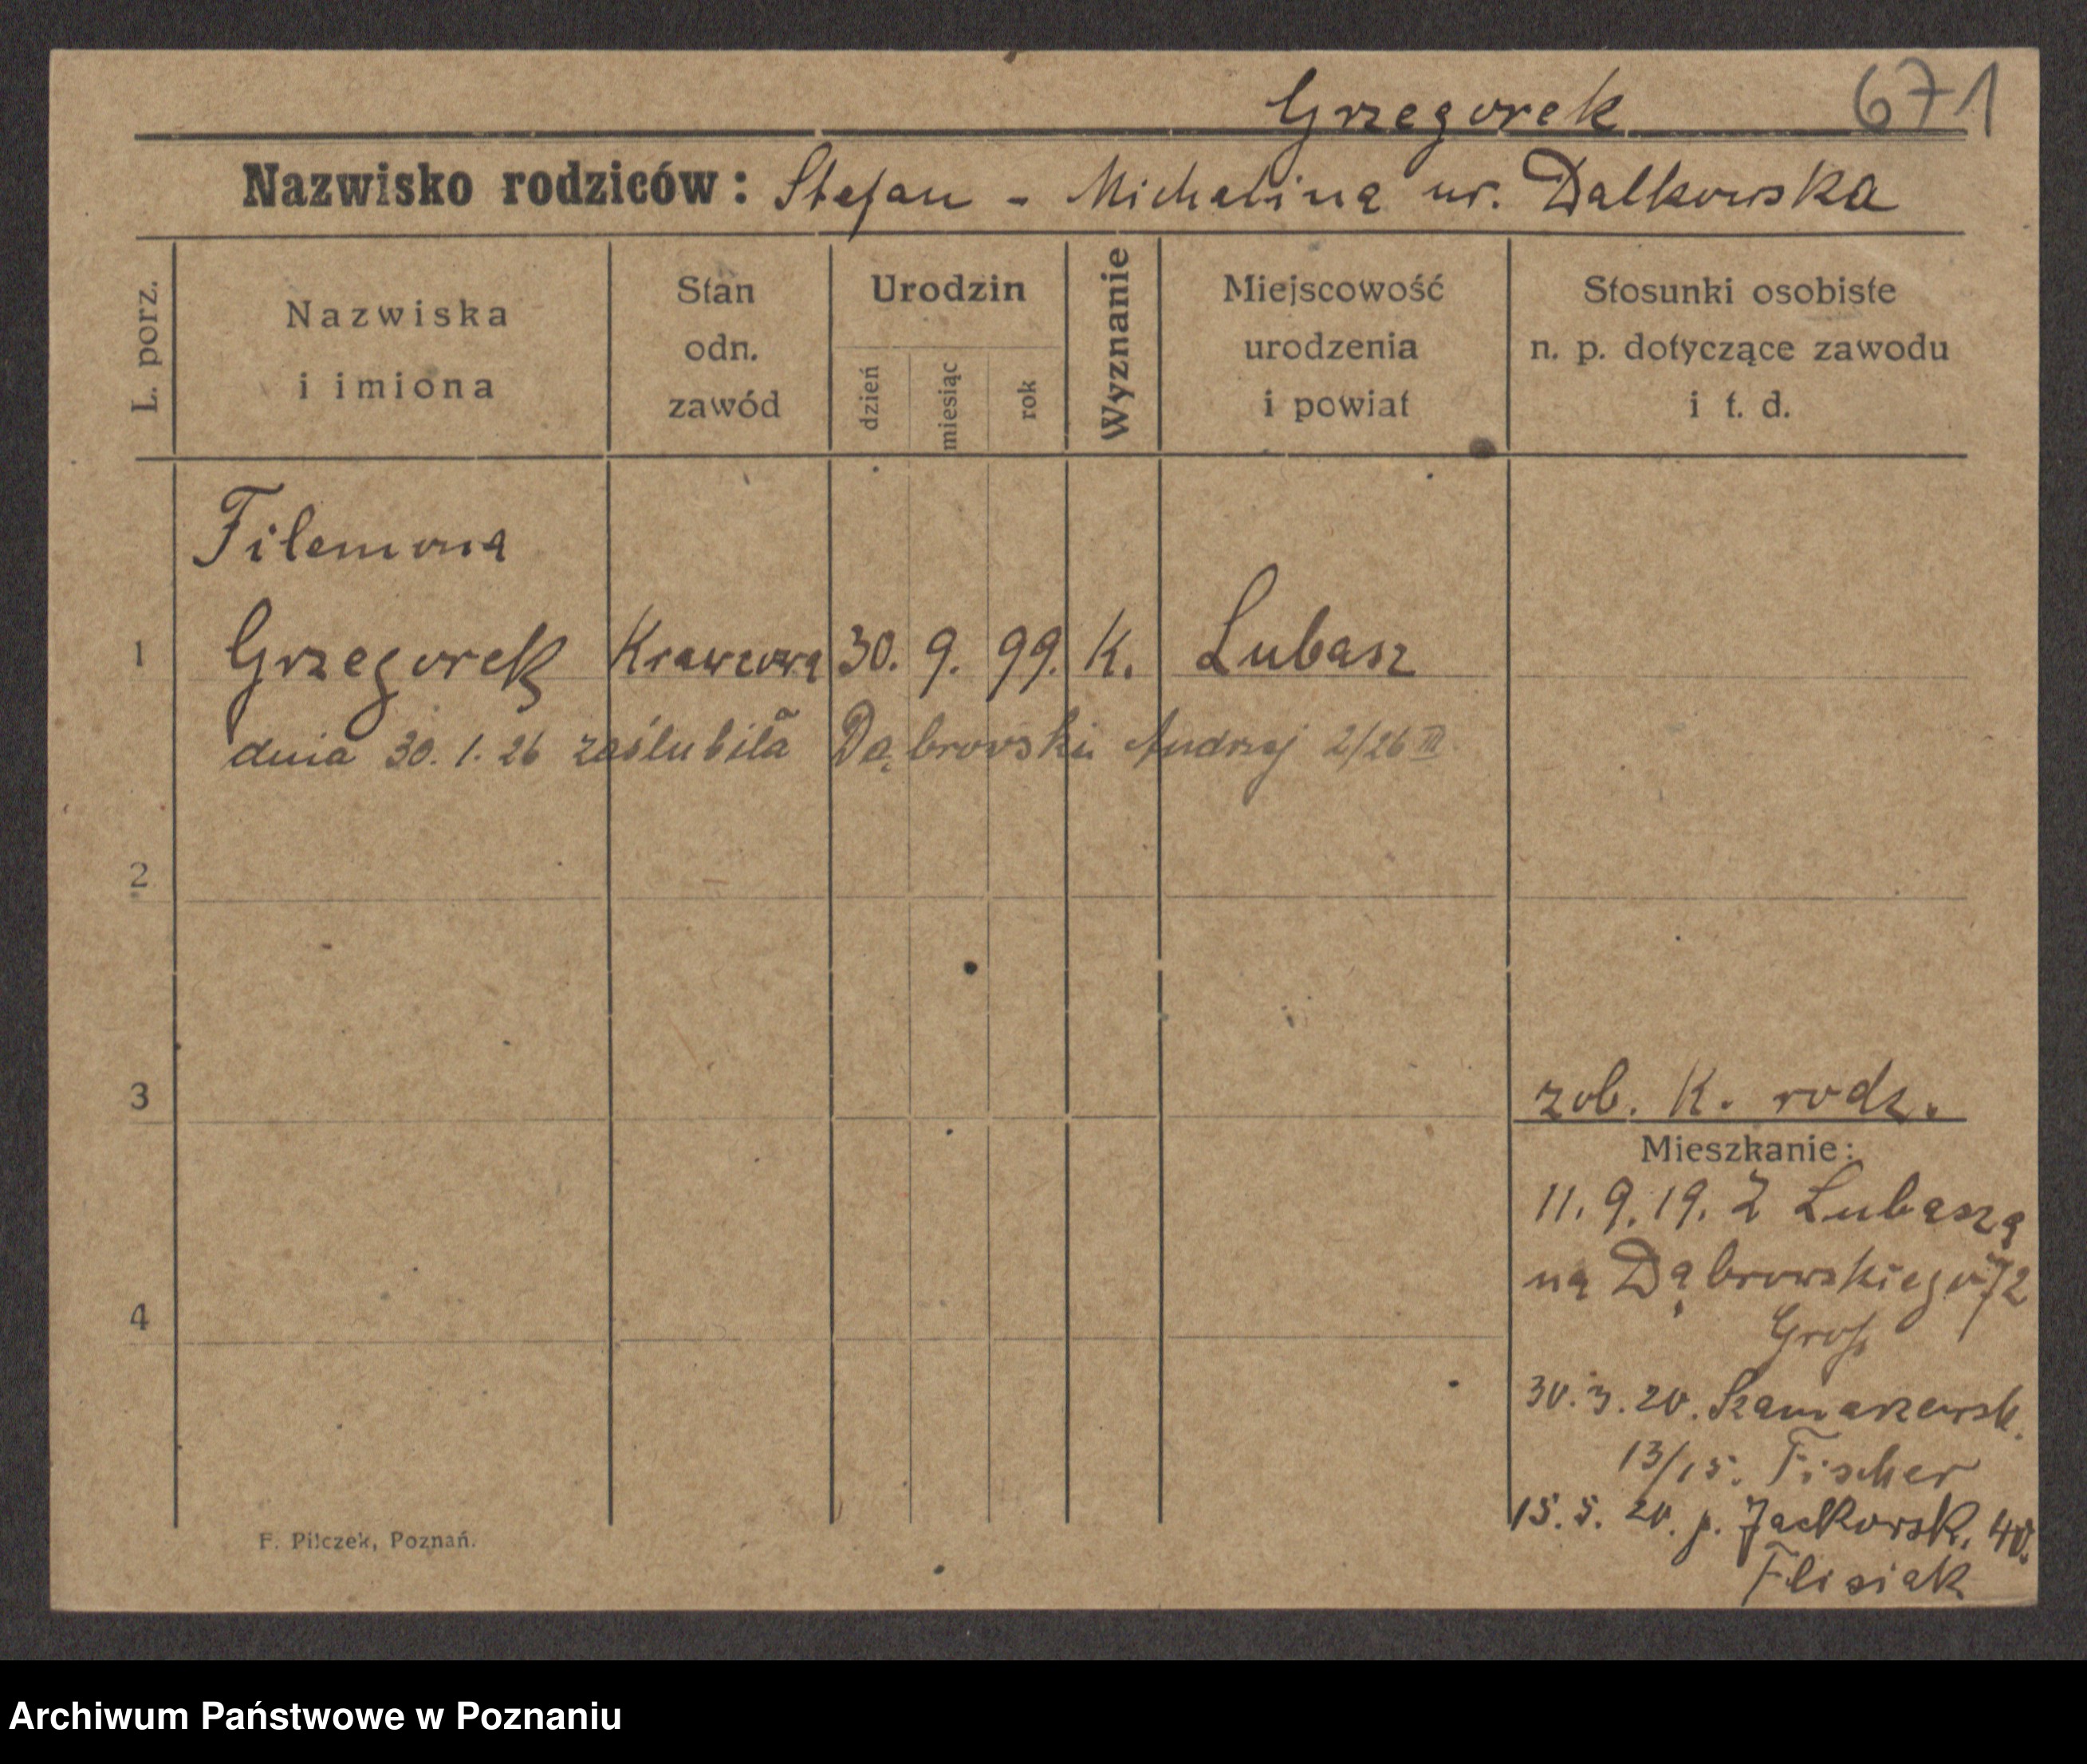 Grzegorek 671
Nazwisko rodziców: Stefan - Michalina ur. Dalkowska
L. porz.
Nazwiska
i imiona
Stan
odn.
zawód
Urodzin
dzień
miesiąc
rok
Wyznanie
Miejscowość
urodzenia
i powiat
Stosunki osobiste
n. p. dotyczące zawodu
i t. d.
Filemona
1 Grzegorek Krawcowa 30. 9. 99. K. Lubasz
dnia 30. 1. 26 zaślubiła Dąbrowski Andrzej 2/26 III
2
3
zob. K. rodz.
Mieszkanie:
11. 9. 19. Z Lubasza
na Dąbrowskiego 72
4
30. 3. 20. Szamarzewsk.
13/15. Fischer
15. 5. 20. p. Jackowsk. 40.
Flisiak
F. Pilczek, Poznań.
Archiwum Państwowe w Poznaniu